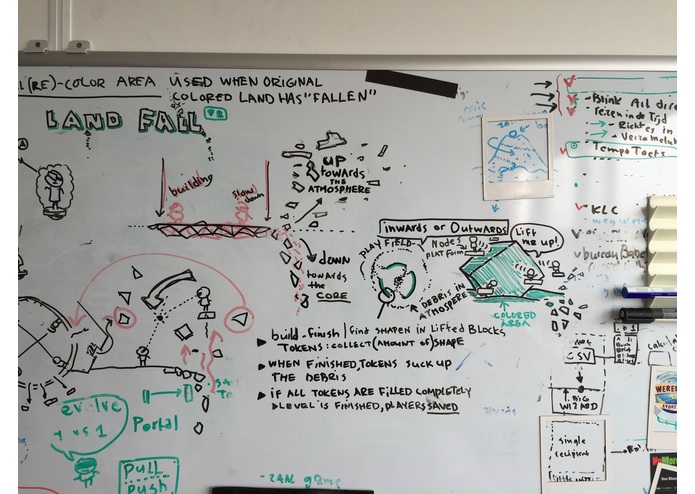 (RE)-COLOR AREA USED WHEN ORIGINAL
COLORED LAND HAS "FALLEN"
LAND FALL
UP
towards
THE
ATMOSPHERE
building
slow
down
down
towards
the
CORE
inwards or Outwards
PLAYFIELD
NODES
PLATFORM
Lift
me up!
DEBRIS IN
ATMOSPERE
COLORED
AREA
build-finish/find SHAPE IN Lifted Blocks,
TOKENS: COLLECT (AMOUNT OF) SHAPE
WHEN FINISHED, TOKENS SUCK UP
THE DEBRIS
IF ALL TOKENS ARE FILLED COMPLETELY
LEVEL IS FINISHED, PLAYERS SAVED
evolve
1 vs 1
Portal
PULL
PUSH
- Blink
reizen in de Tijd
→ Richt
→ Verzamel
Tempo Toets
- KLC
CSV
BIG
WIZARD
single
recipient
WERE